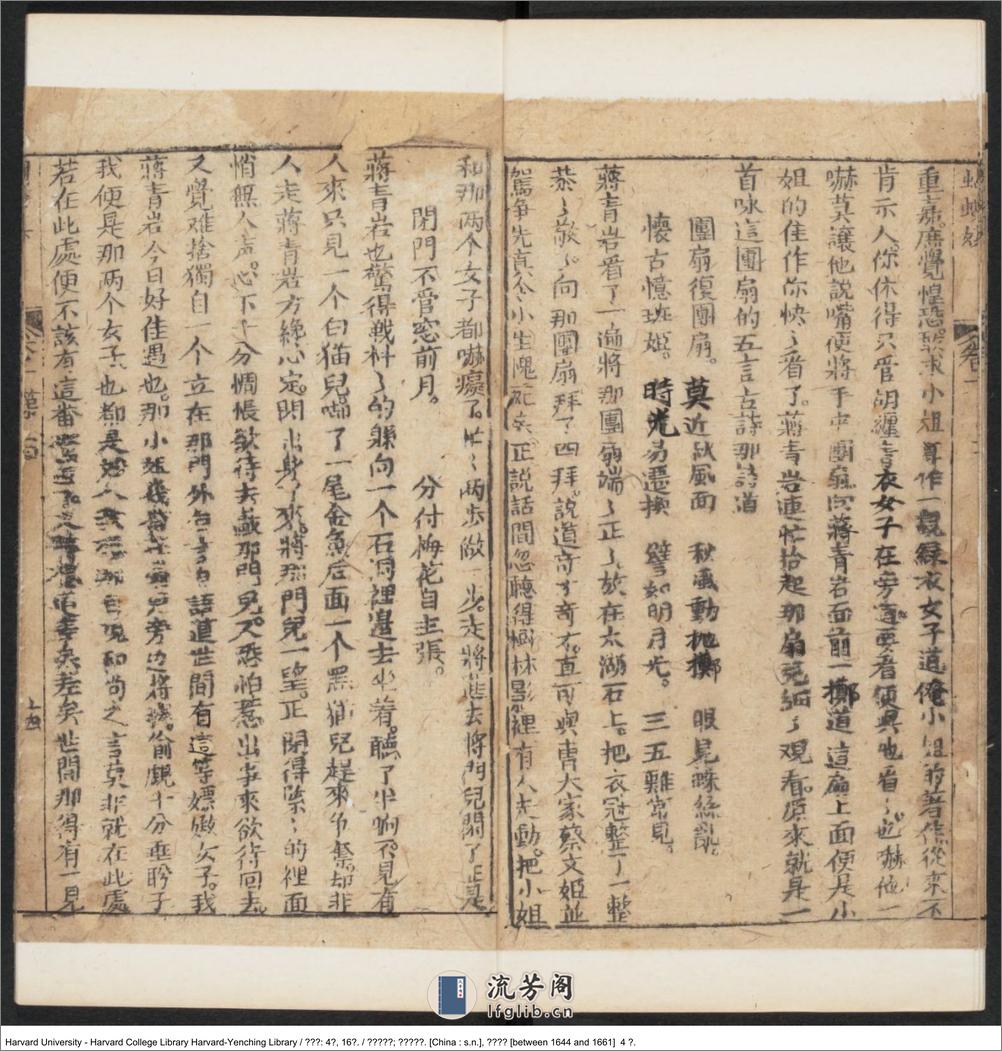 重嘉
肯示人。你休得只管胡纏 衣女子在旁道 看便與他看 嚇他一
嚇莫讓他說嘴便將手中團扇向蔣青岩面前一擲道這扇上面便是小
姐的佳作你快〻看了。蔣青岩連忙拾起那扇兒細〻觀看。原來就是一
首咏這團扇的五言古詩那詩道
團扇復團扇。 莫近秋風面 秋風動 眼見 絲亂。
懷古憶班姬。 時光易遷換 譬如明月光。 三五難常見。
蔣青岩看了一遍將那團扇端〻正〻放在太湖石上。把衣冠整了一整
恭〻敬〻向那團扇拜了四拜。說道奇才奇才。直可與曹大家蔡文姬並
駕爭先真令小生愧死矣正說話間忽聽得樹林影裡有人走動。把小姐
和那兩个女子都嚇癡了。忙〻兩步做一步。走將進去將門兒關了正是
閉門不管窓前月。 分付梅花自主張。
蔣青岩也驚得戰抖〻的躲向一个石洞裡邊去坐着。聽了半晌。不見有
人來只見一个白猫兒啣了一尾金魚后面一个黑猫兒趕來爭奪。却非
人走蔣青岩方纔心定。閃出身子來。將那門兒一望。正關得緊〻的裡面
悄無人声。心下十分惆悵欲待去敲那門兒。又恐怕惹出事來欲待回去。
又覺难捨獨自一个立在那門外自言自語道世間有這等嫖緻女子。我
蔣青岩今日好佳遇也。那小姐 十分垂盻于
我便是那兩个女子。也都是 和尚之言莫非就在此處
若在此處便不該有這番 矣差矣世間那得有一見
卷一
流芳阁
lfglib.cn
Harvard University - Harvard College Library Harvard-Yenching Library / ???: 4?, 16?. / ?????; ?????. [China : s.n.], ???? [between 1644 and 1661] 4 ?.